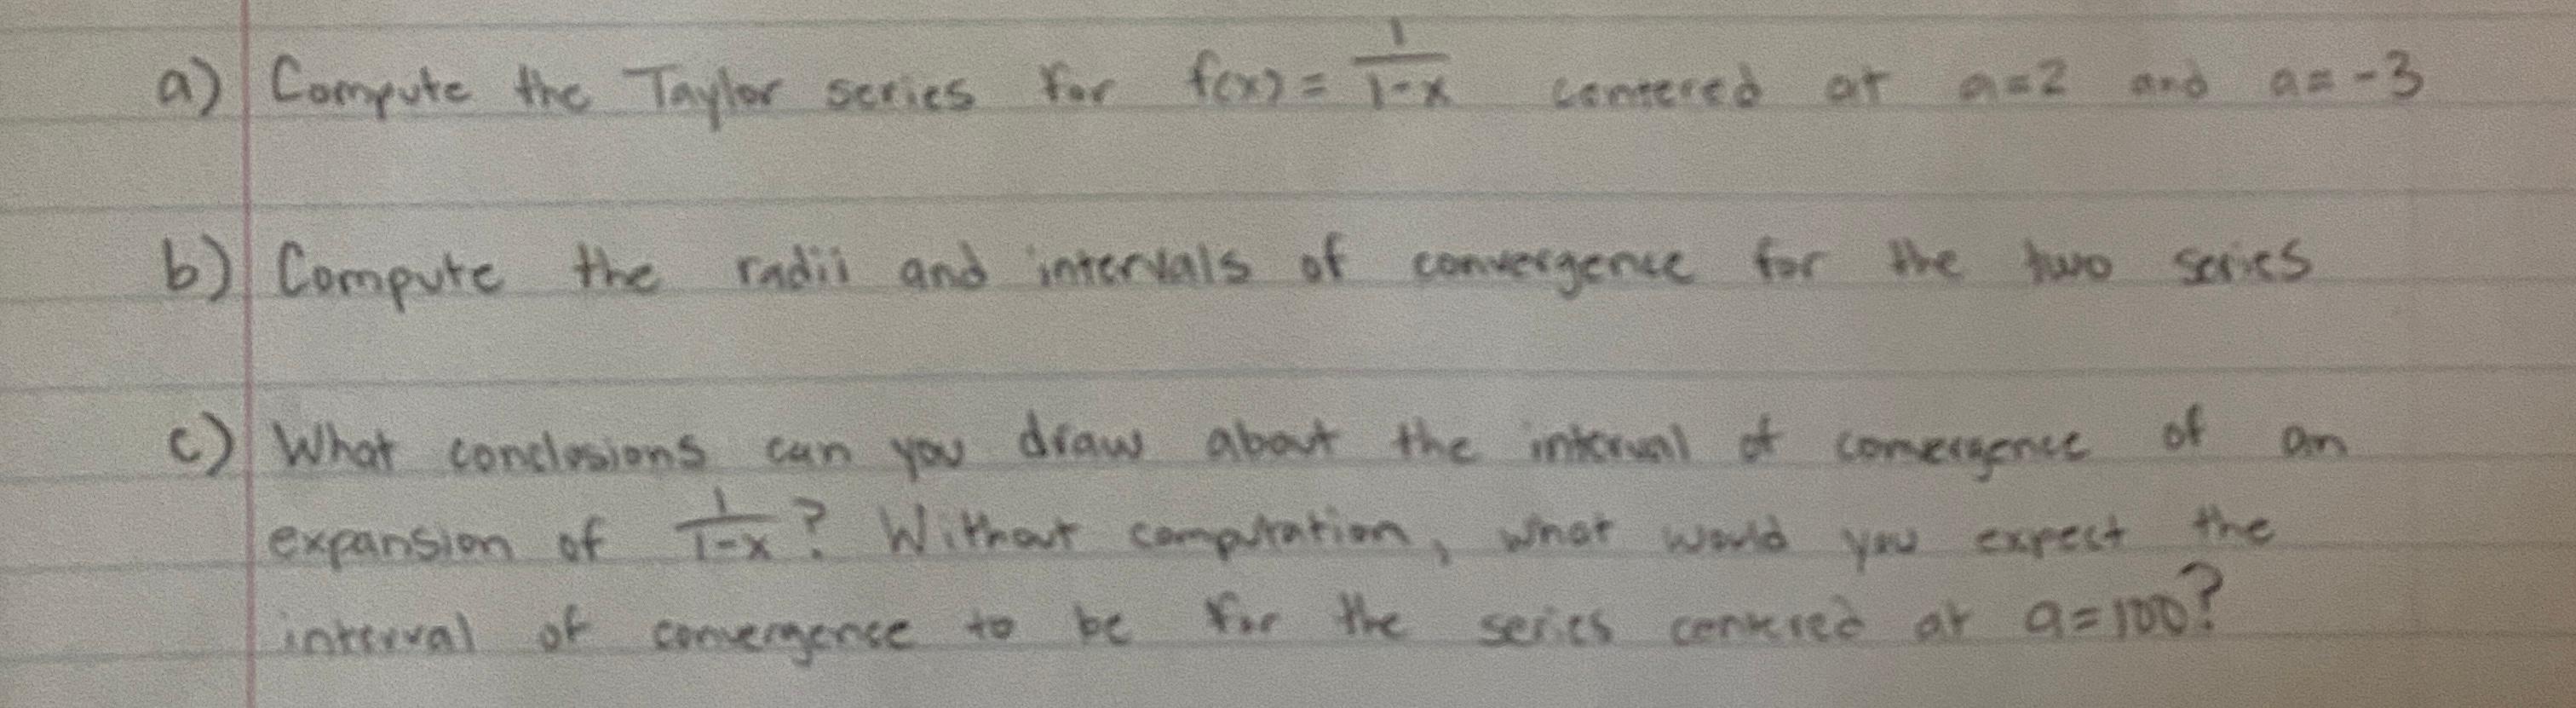 a) Compute the Taylor series for f(x) = 1/(1-x) centered at a=2 and a=-3
b) Compute the radii and intervals of convergence for the two series
c) What conclusions can you draw about the interval of convergence of an
expansion of 1/(1-x)? Without computation, what would you expect the
interval of convergence to be for the series centered at a=100?